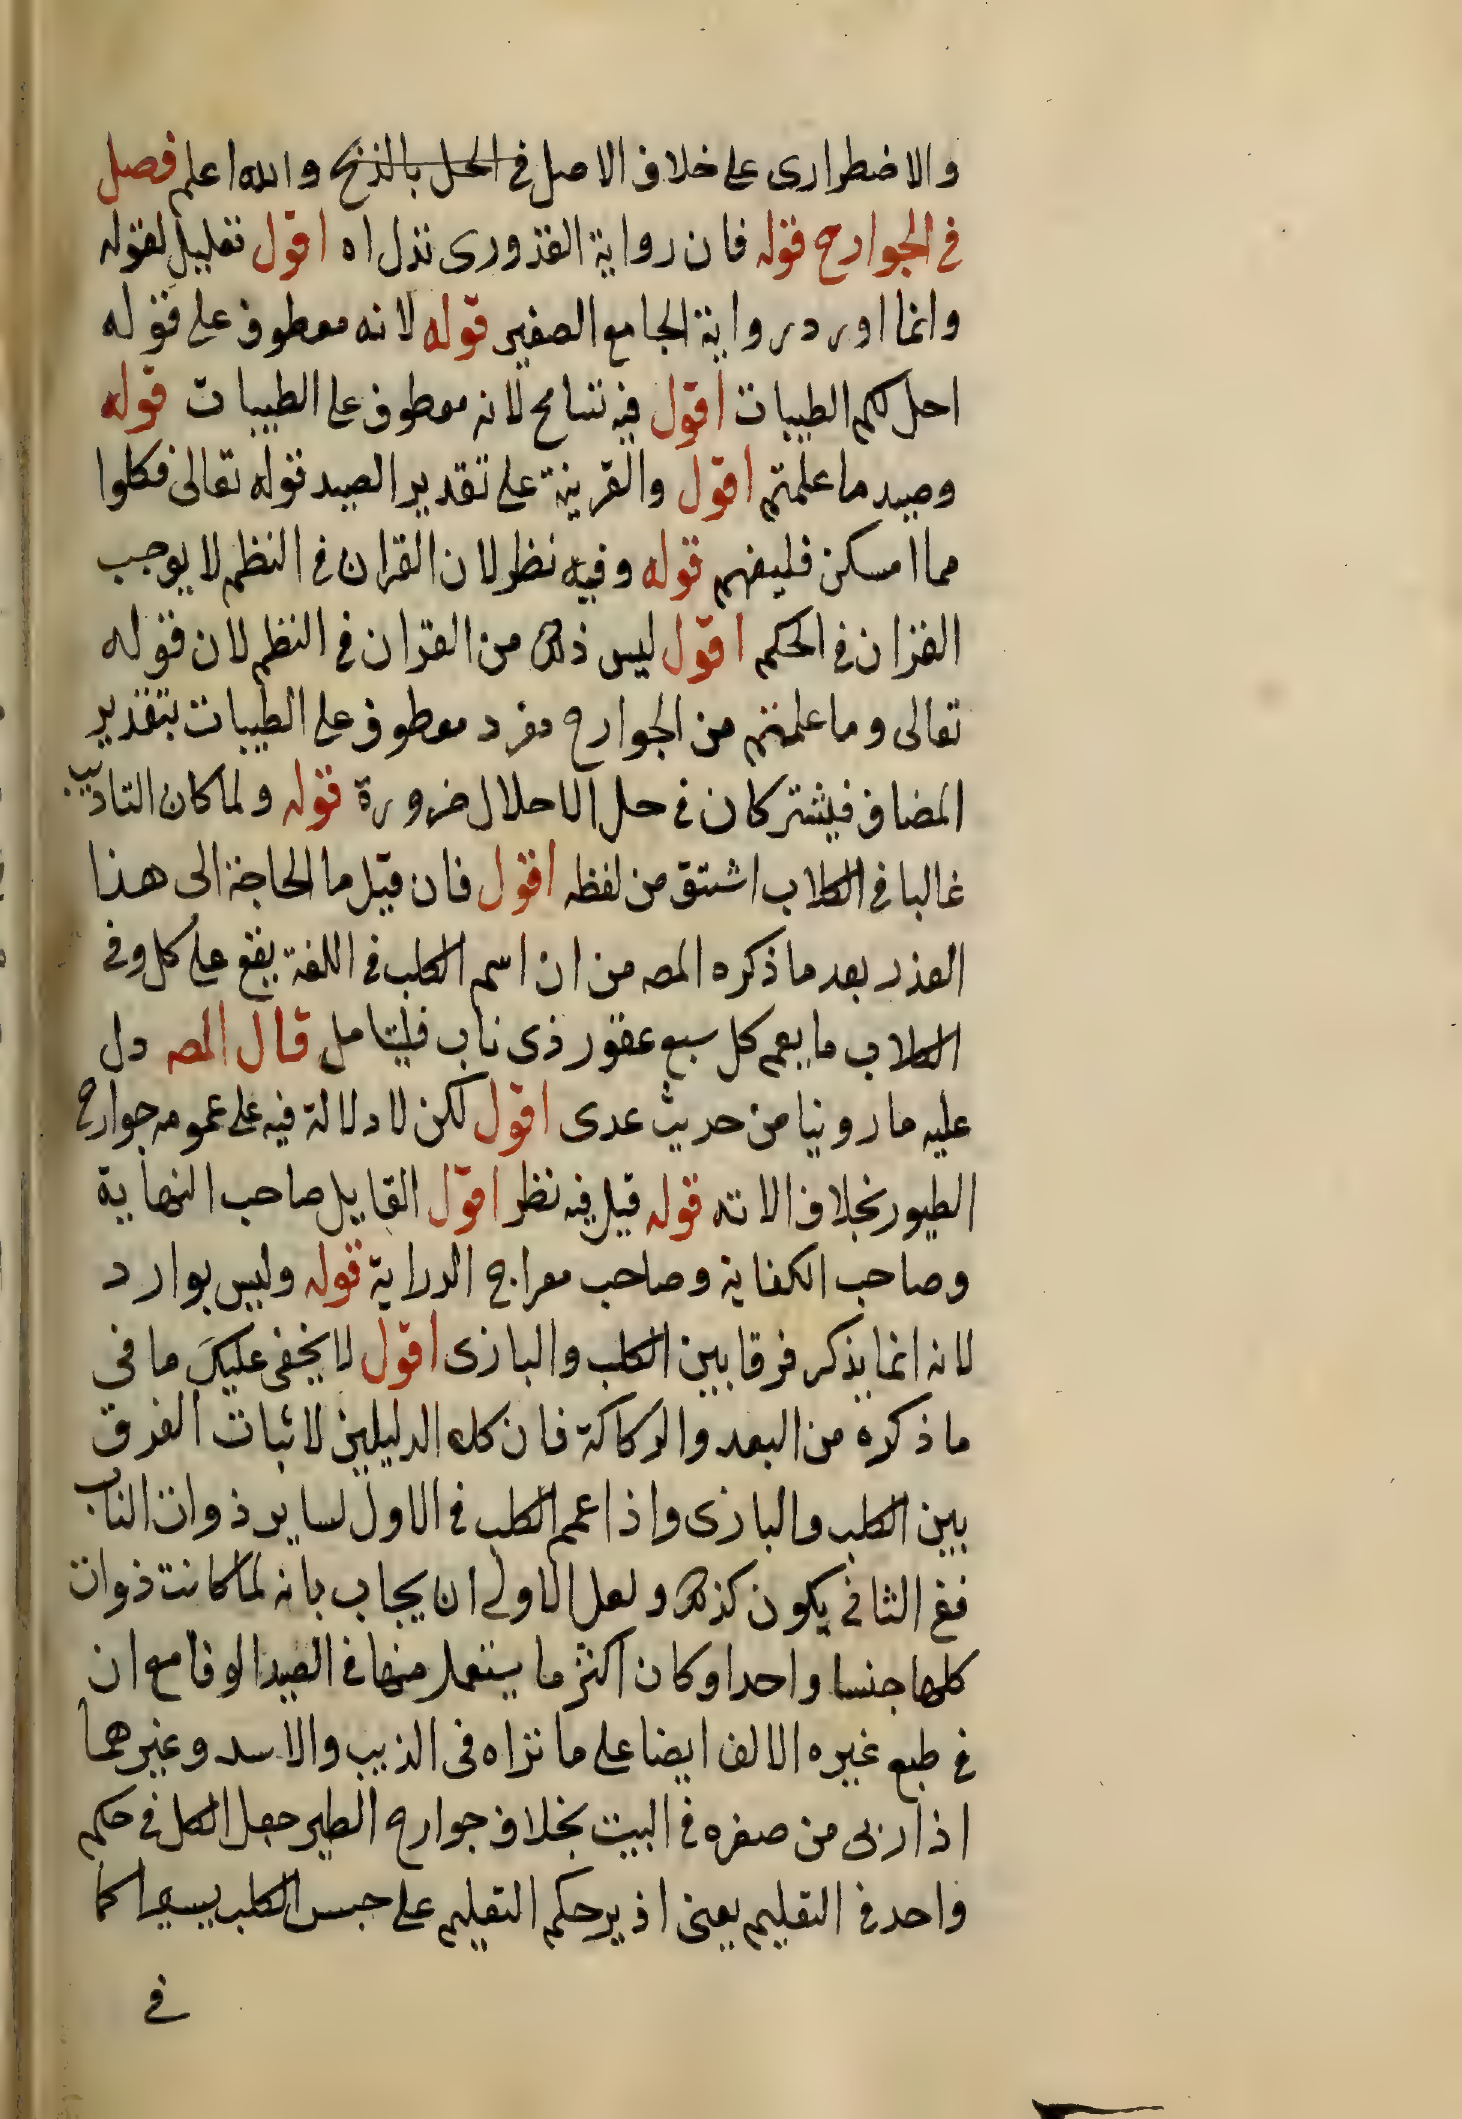 والاضطراري على خلاف الاصل في الحل بالذبح والله اعلم فصل
في الجوارح قوله فان رواية القدوري تدل اه اقول تعليل لقوله
وانما اورد رواية الجامع الصغير قوله لانه معطوف على قوله
احل لكم الطيبات اقول فيه تسامح لانه معطوف على الطيبات قوله
وصيد ما علمتم اقول والقرينة على تقدير الصيد قوله تعالى فكلوا
مما امسكن فليفهم قوله وفيه نظر لان القران في النظم لا يوجب
القران في الحكم اقول ليس ذلك من القران في النظم لان قوله
تعالى وما علمتم من الجوارح مفرد معطوف على الطيبات بتقدير
المضاف فيشتركان في حل الاحلال ضرورة قوله ولما كان التاديب
غالبا في الكلاب اشتق من لفظه اقول فان قيل ما الحاجة الى هذا
العذر بعد ما ذكره المص من ان اسم الكلب في اللغة يقع على كل وفي
الكلاب ما يعم كل سبع عقور ذي ناب فليتامل قال المص دل
عليه ما روينا من حديث عدى اقول لكن لا دلالة فيه على عمومه جوارح
الطيور بخلاف الاته قوله قيل فيه نظر اقول القايل صاحب النهاية
وصاحب الكفاية وصاحب معراج الدراية قوله وليس بوارد
لانه انما يذكر فرقا بين الكلب والبازى اقول لا يخفى عليك ما في
ما ذكره من البعد والركاكة فان كله الدليلين لاثبات الفرق
بين الكلب والبازى واذا عمم الكلب في الاول لساير ذوات الناب
ففي الثاني يكون كذلك ولعل الاولى ان يجاب بانه لما كانت ذوات
كلها جنسا واحدا وكان اكثر ما يستعمل منها في الصيد الوفا مع ان
في طبع غيره الالف ايضا على ما نراه في الذيب والاسد وغيرهما
اذا ربى من صغره في البيت بخلاف جوارح الطير جعل الكل في حكم
واحد في التعليم يعنى اذ يرحكم التعليم على جنس الكلب كما
في